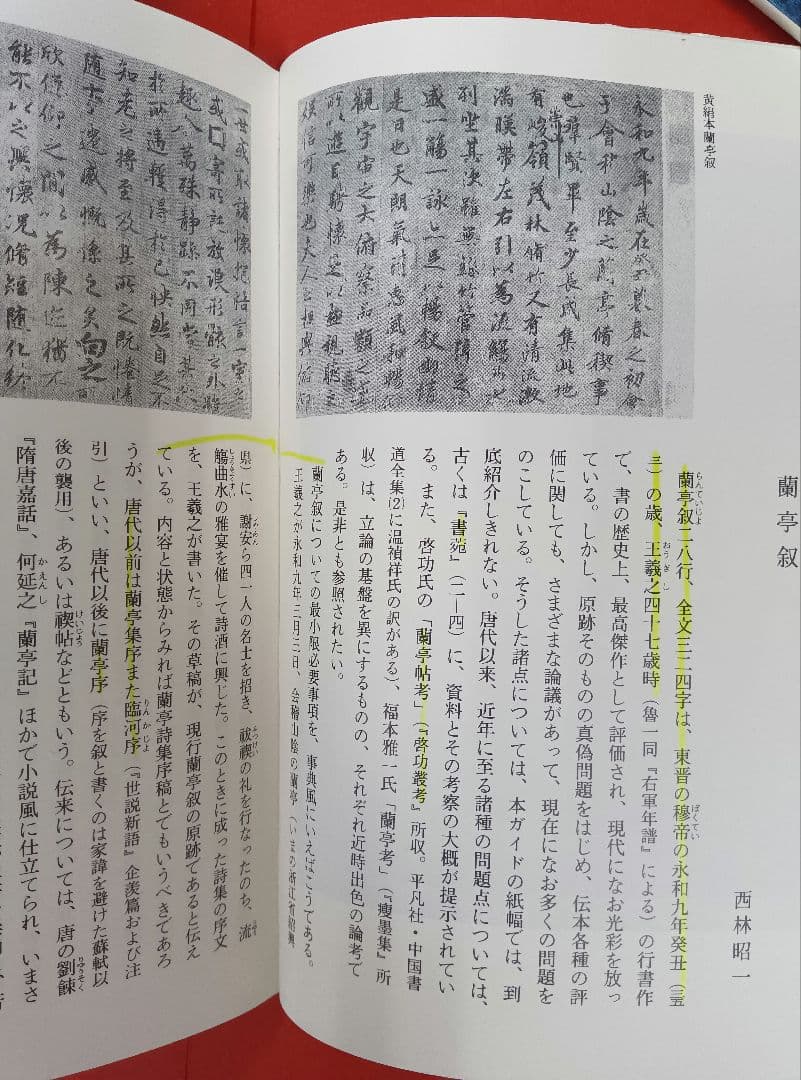 蘭亭叙
西林昭一
黄絹本蘭亭叙
永和九年歳在癸丑暮春之初會
于會稽山陰之蘭亭脩禊事
也群賢畢至少長咸集此地
崇山
有峻領茂林脩竹又有清流激
湍暎帶左右引以為流觴
列坐其次雖無絲竹管弦之
盛一觴一詠亦足以暢叙幽情
是日也天朗氣清惠風和暢
觀宇宙之大俯察品類之盛
所以遊目騁懷足以極視聽之
娯信可樂也夫人之相與俯仰
一世或取諸懷抱悟言一室之
或寄所託放浪形骸之外雖
趣萬殊静躁不同當其
於所遇蹔得於己快然自足不
知老之將至及其所之既惓情
随事遷感慨係之矣向之
欣俛仰之閒以為陳迹猶不
能不以之興懷況脩短随化終
蘭亭叙二八行、全文三二四字は、東晋の穆帝の永和九年癸丑(三五
三)の歳、王羲之四十七歳時(魯一同『右軍年譜』による)の行書作
で、書の歴史上、最高傑作として評価され、現代になお光彩を放っ
ている。しかし、原跡そのものの真偽問題をはじめ、伝本各種の評
価に関しても、さまざまな論議があって、現在になお多くの問題を
のこしている。そうした諸点については、本ガイドの紙幅では、到
底紹介しきれない。唐代以来、近年に至る諸種の問題点については、
古くは『書苑』(二―四)に、資料とその考察の大概が提示されてい
る。また、啓功氏の「蘭亭帖考」(『啓功叢考』所収。平凡社・中国書
道全集(2)に温禎祥氏の訳がある)、福本雅一氏「蘭亭考」(『痩墨集』所
収)は、立論の基盤を異にするものの、それぞれ近時出色の論考で
ある。是非とも参照されたい。
蘭亭叙についての最小限必要事項を、事典風にいえばこうである。
王羲之が永和九年三月三日、会稽山陰の蘭亭(いまの浙江省紹興
県)に、謝安ら四一人の名士を招き、祓禊の礼を行なったのち、流
觴曲水の雅宴を催して詩酒に興じた。このときに成った詩集の序文
を、王羲之が書いた。その草稿が、現行蘭亭叙の原跡であると伝え
ている。内容と状態からみれば蘭亭詩集序稿とでもいうべきであろ
うが、唐代以前は蘭亭集序また臨河序(『世説新語』企羨篇および注
引)といい、唐代以後に蘭亭序(序を叙と書くのは家諱を避けた蘇軾以
後の襲用)、あるいは禊帖などともいう。伝来については、唐の劉餗
『隋唐嘉話』、何延之『蘭亭記』ほかで小説風に仕立てられ、いまさ